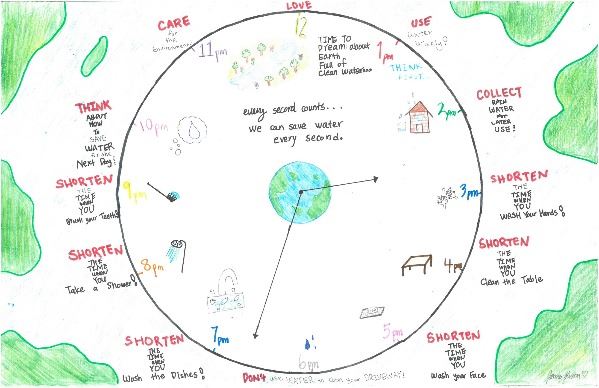 LOVE
12
TIME TO
Dream about
Earth
Full of
Clean Water....
CARE
for
the
Environment
11pm
USE
Water
Wisely?
1pm
THINK
COLLECT
RAIN
WATER
FOR
LATER
USE!
2pm
every second counts...
We can save water
every second.
THINK
ABOUT
HOW
TO
SAVE
WATER
Next Day!
10pm
SHORTEN
THE
TIME
WHEN
YOU
Wash Your Hands!
3pm
SHORTEN
THE
TIME
WHEN
YOU
Brush your Teeth!
9pm
SHORTEN
THE
TIME
WHEN
YOU
Clean the Table
4pm
SHORTEN
THE
TIME
WHEN
YOU
Take a Shower!
8pm
SHORTEN
THE
TIME
WHEN
YOU
Wash your Face
5pm
SHORTEN
THE
TIME
WHEN
YOU
Wash the Dishes!
7pm
6pm
DON'T use WATER to clean your DRIVEWAY!